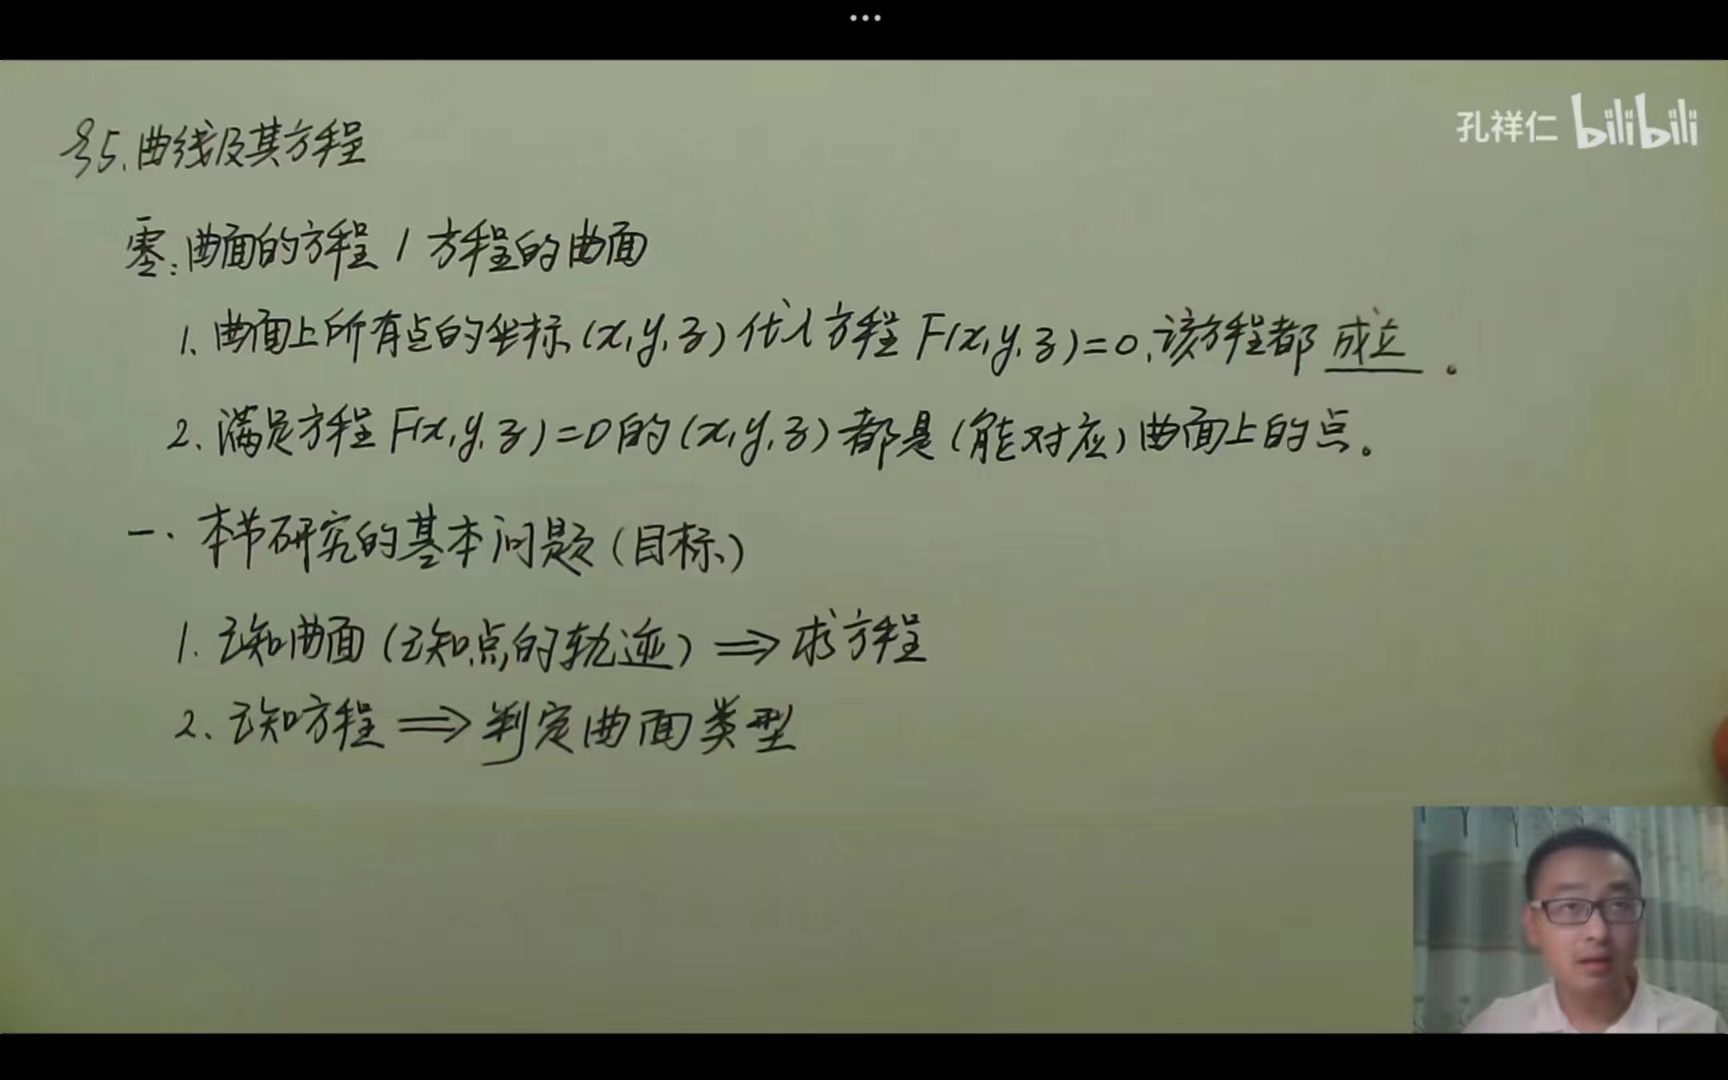 ...
孔祥仁 bilibili
§5.曲线及其方程
零:曲面的方程/方程的曲面
1.曲面上所有点的坐标(x,y,z)代入方程F(x,y,z)=0,该方程都 成立 。
2.满足方程F(x,y,z)=0的(x,y,z)都是(能对应)曲面上的点。
一.本节研究的基本问题(目标)
1.已知曲面(已知点的轨迹)⟹求方程
2.已知方程⟹判定曲面类型